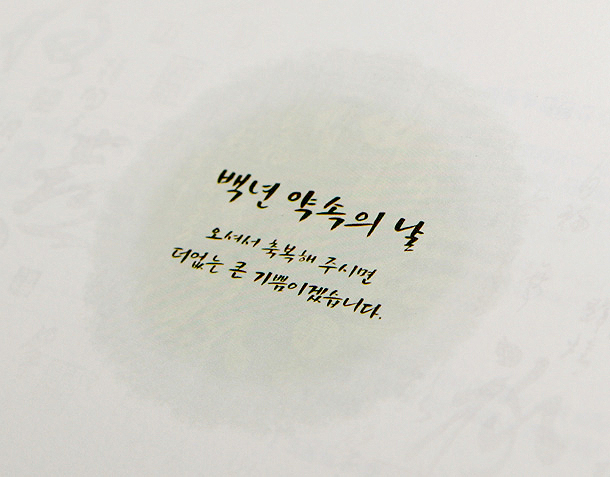 백년 약속의 날
오셔서 축복해 주시면
더없는 큰 기쁨이겠습니다.